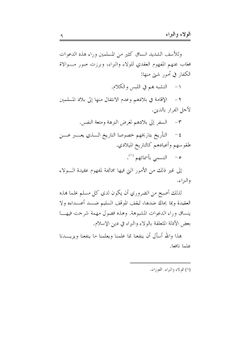 الولاء والبراء ٩
وللأسف الشديد انساق كثير من المسلمين وراء هذه الدعوات
فغاب عنهم المفهوم العقدي للولاء والبراء، وبرزت صور موالاة
الكفار في أمور شتى منها:
١- التشبه بهم في اللبس والكلام.
٢- الإقامة في بلادهم وعدم الانتقال منها إلى بلاد المسلمين
لأجل الفرار بالدين.
٣- السفر إلى بلادهم لغرض النزهة ومتعة النفس.
٤- التأريخ بتاريخهم خصوصا التاريخ الذي يعبر عن
طقوسهم وأعيادهم كالتاريخ الميلادي.
٥- التسمي بأسمائهم (١).
إلى غير ذلك من الأمور التي فيها مخالفة لمفهوم عقيدة الولاء
والبراء.
لذلك أصبح من الضروري أن يكون لدى كل مسلم علما بهذه
العقيدة وبما يحاك ضدها، ليقف الموقف السليم ضد أعدائه ولا
ينساق وراء الدعوات المشبوهة. وهذه فصول مهمة شرحت فيها
بعض الأدلة المتعلقة بالولاء والبراء في دين الإسلام.
هذا والله أسأل أن ينفعنا بما علمنا ويعلمنا ما ينفعنا ويزيدنا
علما نافعا.
(١) الولاء والبراء، الفوزان.